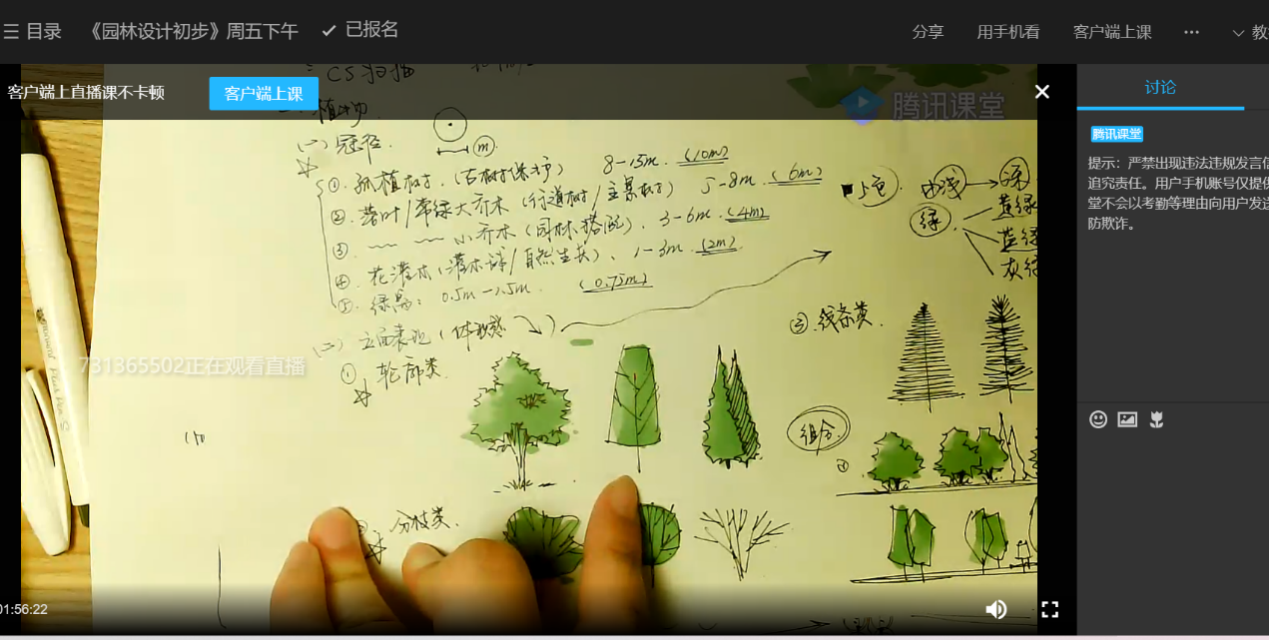 目录 《园林设计初步》周五下午 已报名 分享 用手机看 客户端上课 ... 教
客户端上直播课不卡顿 客户端上课
腾讯课堂
讨论
腾讯课堂
提示：严禁出现违法违规发言信
追究责任。用户手机账号仅提供
堂不会以考勤等理由向用户发送
防欺诈。
(一) 冠径.
m
①. 孤植树. (古树保护) 8-15m. (10m)
②. 落叶/常绿大乔木 (行道树/主景树) 5-8m. (6m)
③. 小乔木 (园林搭配). 3-6m. (4m)
④. 花灌木 (灌木球/自然生长). 1-3m. (2m).
⑤. 绿篱: 0.5m-1.5m. (0.75m)
色. 由浅 深
绿 黄绿
蓝绿
灰绿
(二) 立面表现
① 轮廓类
③. 线条类.
731365502正在观看直播
组合.
①
分枝类.
01:56:22